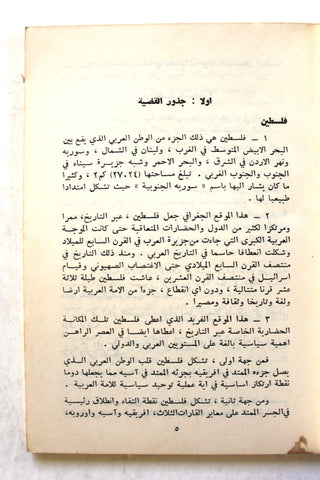 اولا : جذور القضية
فلسطين
١ — فلسطين هي ذلك الجزء من الوطن العربي الذي يقع بين
البحر الابيض المتوسط في الغرب ، ولبنان في الشمال ، وسوريه
ونهر الاردن في الشرق ، والبحر الاحمر وشبه جزيرة سيناء في
الجنوب والجنوب الغربي . تبلغ مساحتها (٢٧٠٢٤) كم٢ ، وكثيرا
ما كان يشار اليها باسم « سوريه الجنوبية » حيث تشكل امتدادا
طبيعيا لها .
٢ — هذا الموقع الجغرافي جعل فلسطين ، عبر التاريخ، ممرا
ومرتكزا لكثير من الدول والحضارات المتعاقبة حتى كانت الموجة
العربية الكبرى التي جاءت من جزيرة العرب في القرن السابع للميلاد
وشكلت انعطافا حاسما في تاريخ المنطقة . ومنذ ذلك التاريخ في
منتصف القرن السابع الميلادي حتى الاغتصاب الصهيوني وقيام
اسرائيل في منتصف القرن العشرين ، عاشت فلسطين طيلة ثلاثة
عشر قرنا متتالية ، ودون اي انقطاع ، جزءا من الامة العربية ارضا
ولغة وتاريخا وثقافة ومصيرا .
٣ — هذا الموقع الفريد الذي اعطى فلسطين تلك المكانة
الحضارية الخاصة عبر التاريخ ، اعطاها ايضا في العصر الراهن
اهمية سياسية بالغة على المستويين العربي والدولي .
فمن جهة اولى ، تشكل فلسطين قلب الوطن العربي الذي
يصل جزءه الممتد في افريقيه بجزئه الممتد في آسيه مما يجعلها دوما
نقطة ارتكاز اساسية في اية عملية توحيد سياسية للامة العربية .
ومن جهة ثانية ، تشكل فلسطين نقطة التقاء وانطلاق رئيسية
في الجسر الممتد على معابر القارات الثلاث، افريقيه وآسيه واوروبه،
٥